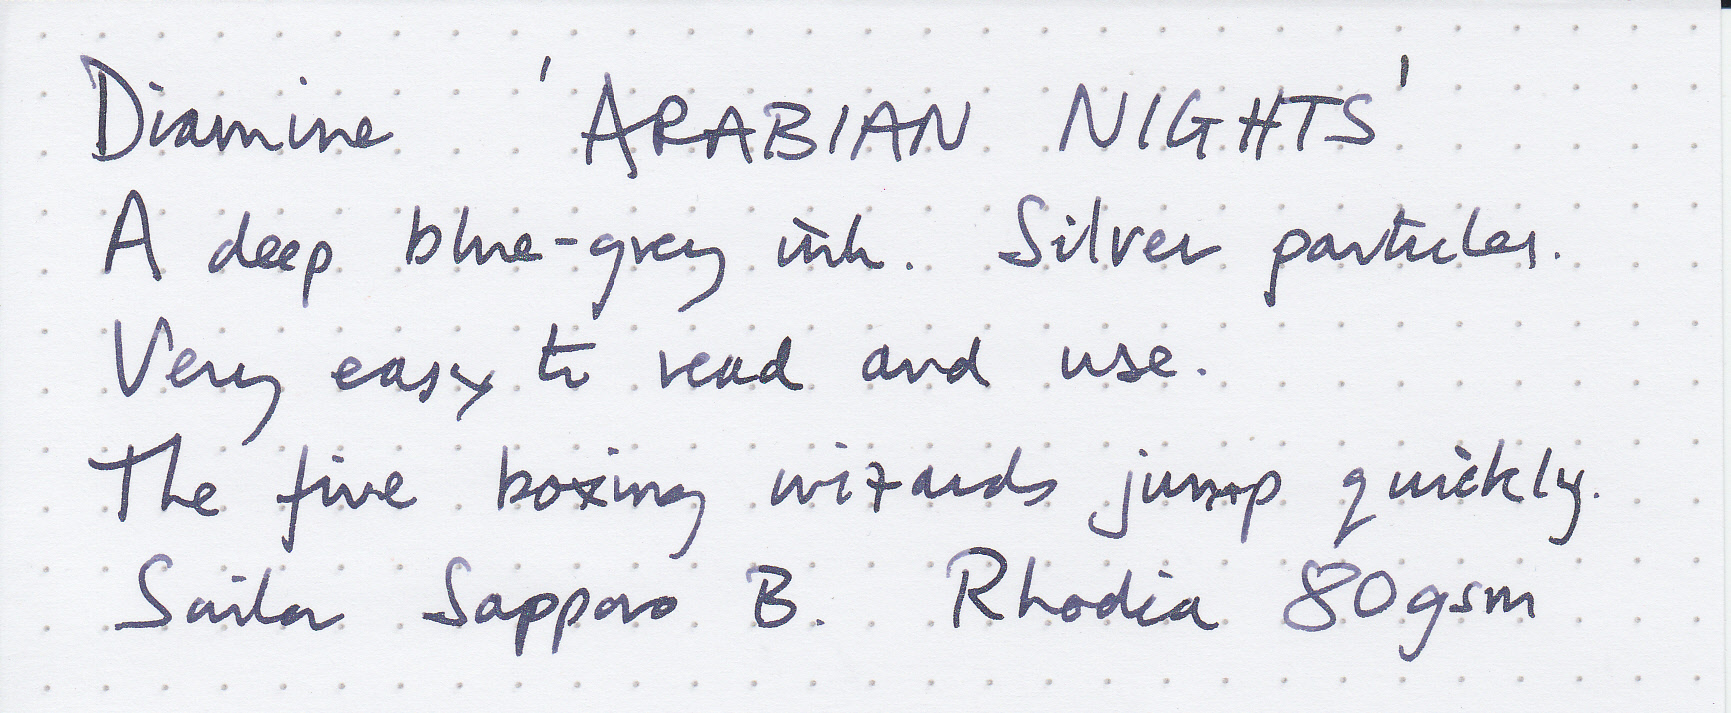 Diamine 'ARABIAN NIGHTS'
A deep blue-grey ink. Silver particles.
Very easy to read and use.
The five boxing wizards jump quickly.
Sailor Sapporo B. Rhodia 80gsm